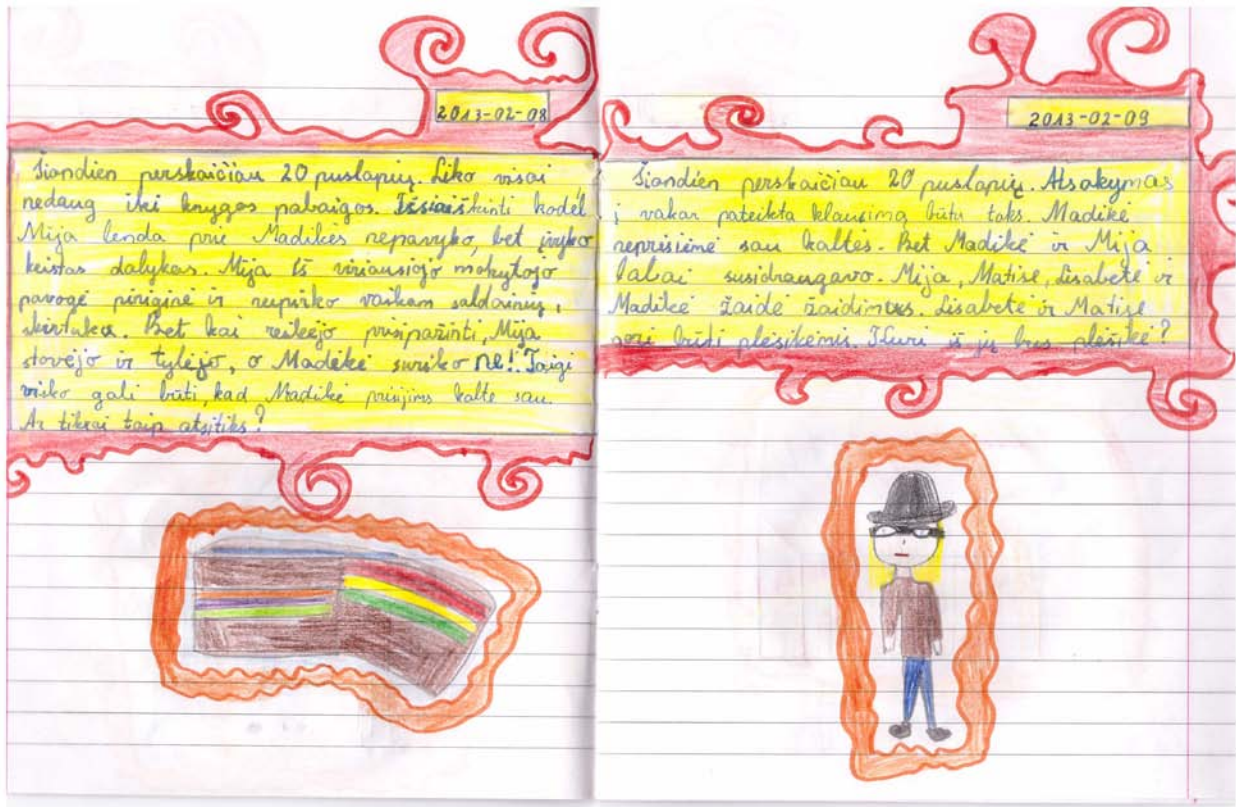 2013-02-08
Šiandien perskaičiau 20 puslapių. Liko visai
nedaug iki knygos pabaigos. Išsiaiškinti kodėl
Mija lenda prie Madikės nepavyko, bet įvyko
keistas dalykas. Mija iš vyriausiojo mokytojo
pavogė piniginę ir nupirko vaikam saldainių,
skirtuką. Bet kai reikėjo prisipažinti, Mija
stovėjo ir tylėjo, o Madikė suriko ne! Taigi
visko gali būti, kad Madikė prisiims kaltę sau.
Ar tikrai taip atsitiks?
2013-02-09
Šiandien perskaičiau 20 puslapių. Atsakymas
į vakar pateikta klausimą būtu toks. Madikė
neprisiėmė sau kaltės. Bet Madikė ir Mija
labai susidraugavo. Mija, Matisė, Lisabetė ir
Madikė žaidė žaidimus. Lisabetė ir Matisė
nori būti plėšikėmis. Kuri iš jų bus plėšikė?